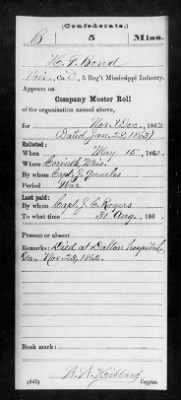 (Confederate.)
B 5 Miss.
H. T. Bond
Priv., Co. D, 5 Reg't Mississippi Infantry.
Appears on
Company Muster Roll
of the organization named above,
for Nov. & Dec., 1862
Dated Jan. 28, 1863
Enlisted:
When May 15, 1862.
Where Corinth Miss.
By whom Capt. J. Quarles
Period War
Last paid:
By whom Capt. J. C. Rogers
To what time 31 Aug., 186
Present or absent
Remarks: Died at Dalton hospital,
Ga. Nov. 23, 1862.
Book mark:
(642)
Copyist.